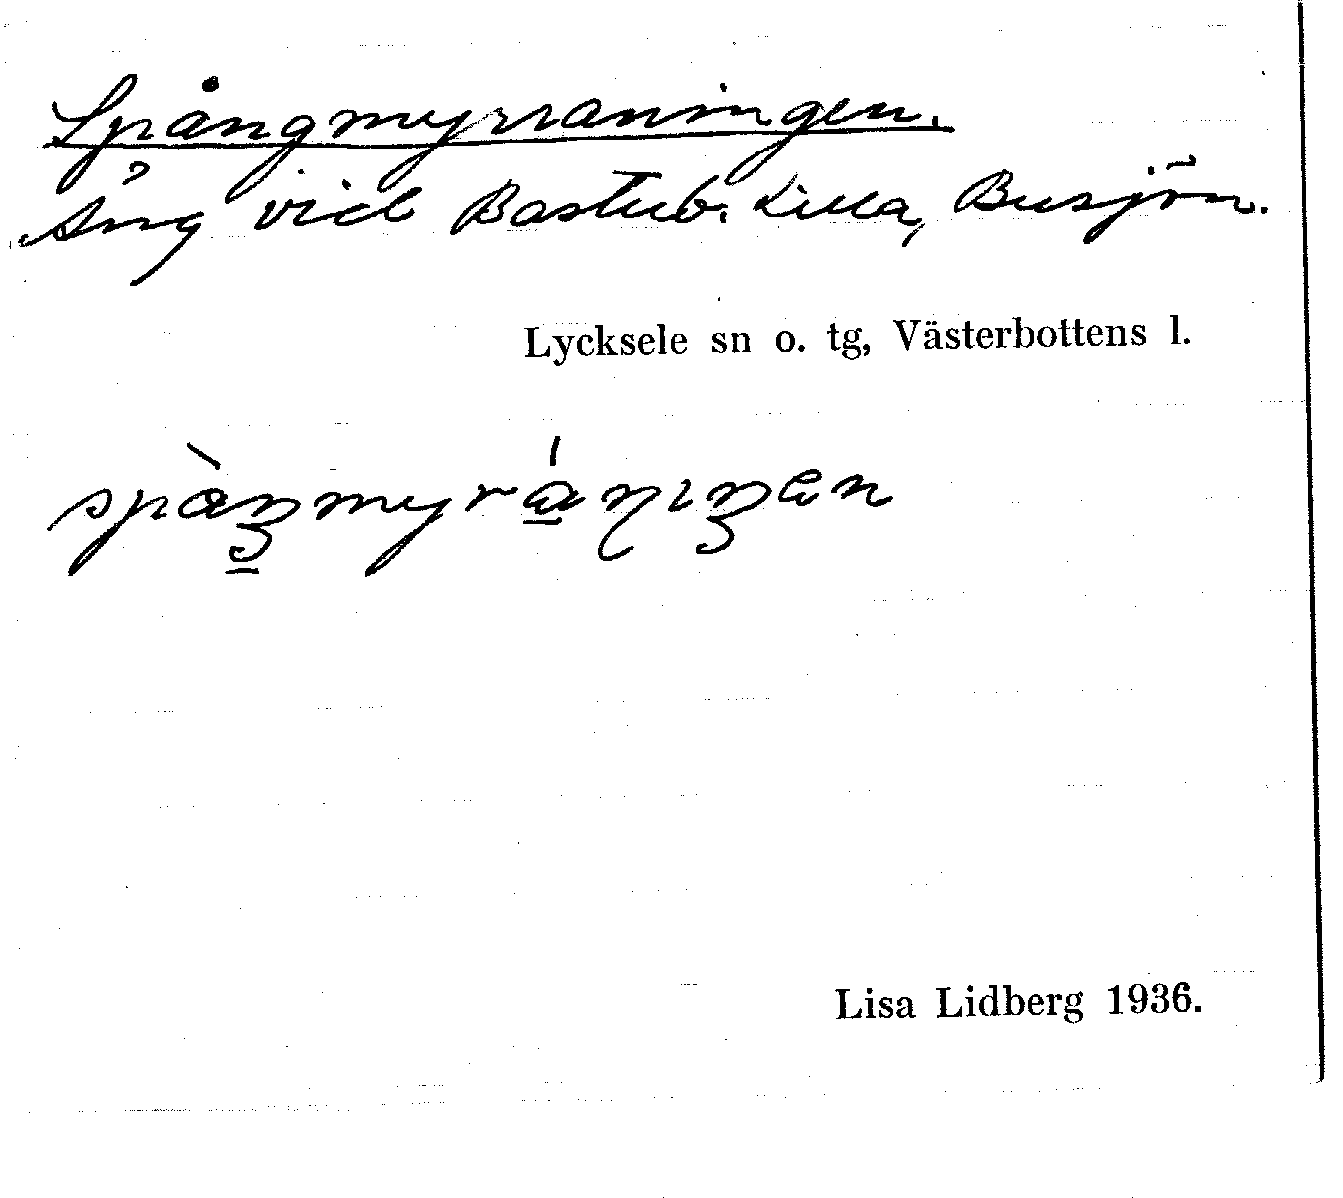 Spångmyrraningen.
Äng vid Bastub. Lilla, Busjön.
Lycksele sn o. tg, Västerbottens l.
Lisa Lidberg 1936.